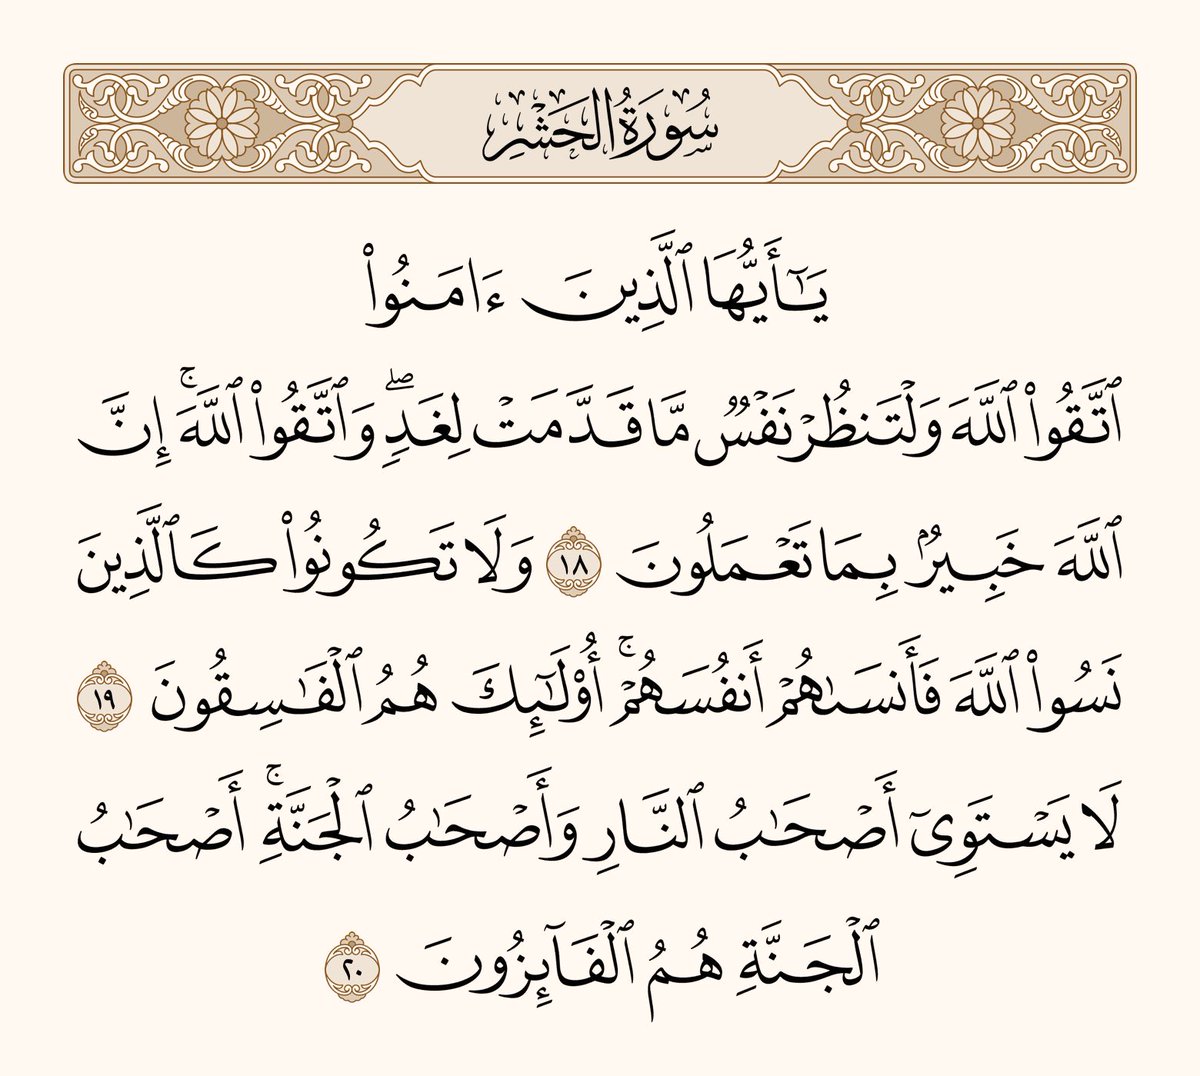 سُورَةُ الحَشْرِ
يَـٰٓأَيُّهَا ٱلَّذِينَ ءَامَنُوا۟
ٱتَّقُوا۟ ٱللَّهَ وَلْتَنظُرْ نَفْسٌ مَّا قَدَّمَتْ لِغَدٍ ۖ وَٱتَّقُوا۟ ٱللَّهَ ۚ إِنَّ
ٱللَّهَ خَبِيرٌۢ بِمَا تَعْمَلُونَ ١٨ وَلَا تَكُونُوا۟ كَٱلَّذِينَ
نَسُوا۟ ٱللَّهَ فَأَنسَىٰهُمْ أَنفُسَهُمْ ۚ أُو۟لَـٰٓئِكَ هُمُ ٱلْفَـٰسِقُونَ ١٩
لَا يَسْتَوِىٓ أَصْحَـٰبُ ٱلنَّارِ وَأَصْحَـٰبُ ٱلْجَنَّةِ ۚ أَصْحَـٰبُ
ٱلْجَنَّةِ هُمُ ٱلْفَآئِزُونَ ٢٠